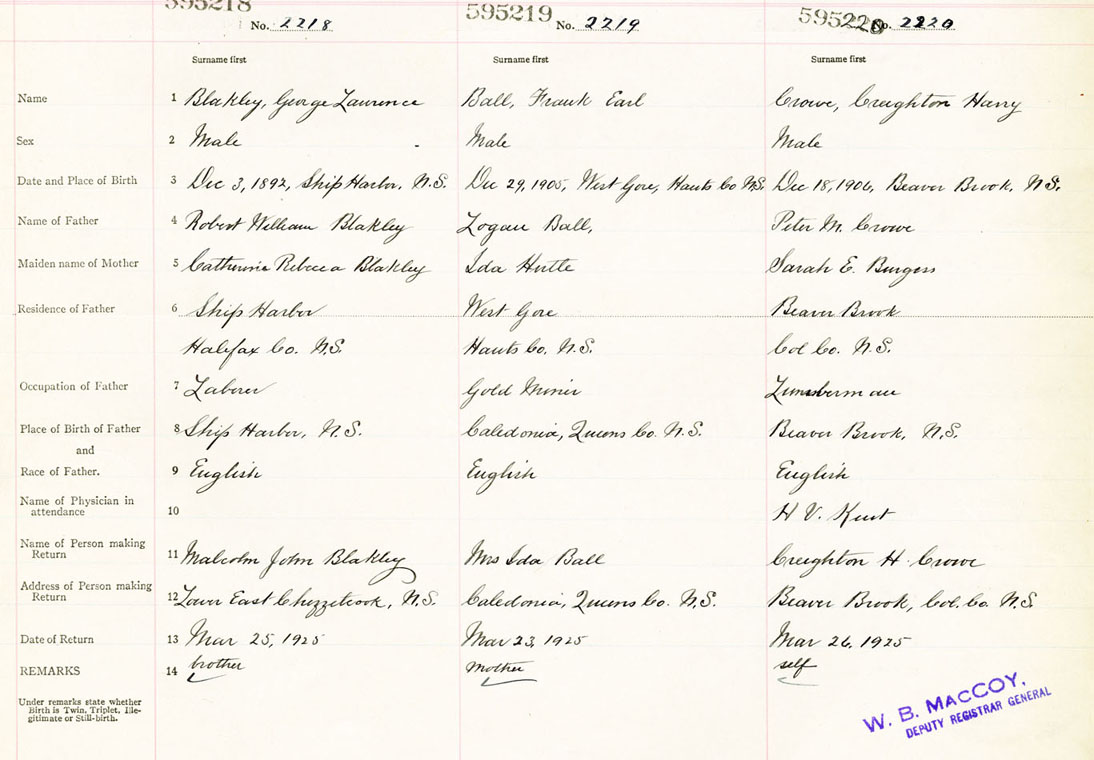 595218 595219 595220
No. 2218 No. 2219 No. 2220
Surname first Surname first Surname first
Name 1 Blakley, George Lawrence Ball, Frank Earl Crowe, Creighton Harry
Sex 2 Male Male Male
Date and Place of Birth 3 Dec 3, 1892, Ship Harbor, N.S. Dec 29, 1905, West Gore, Hants Co N.S. Dec 18, 1906, Beaver Brook, N.S.
Name of Father 4 Robert William Blakley Logan Ball, Peter M. Crowe
Maiden name of Mother 5 Catherine Rebecca Blakley Ida Sarah E. Burgess
Residence of Father 6 Ship Harbor West Gore Beaver Brook
Halifax Co. N.S. Hants Co. N.S. Col Co. N.S.
Occupation of Father 7 Laborer Gold Miner Lumberman
Place of Birth of Father 8 Ship Harbor, N.S. Caledonia, Queens Co. N.S. Beaver Brook, N.S.
and
Race of Father. 9 English English English
Name of Physician in
attendance 10 H V. Kent
Name of Person making
Return 11 Malcolm John Blakley Mrs Ida Ball Creighton H. Crowe
Address of Person making
Return 12 Lower East Chezzetcook, N.S. Caledonia, Queens Co. N.S. Beaver Brook, Col. Co. N.S.
Date of Return 13 Mar 25, 1925 Mar 23, 1925 Mar 26, 1925
REMARKS 14 brother mother self
Under remarks state whether
Birth is Twin, Triplet, Ille-
gitimate or Still-birth.
W. B. MACCOY,
DEPUTY REGISTRAR GENERAL